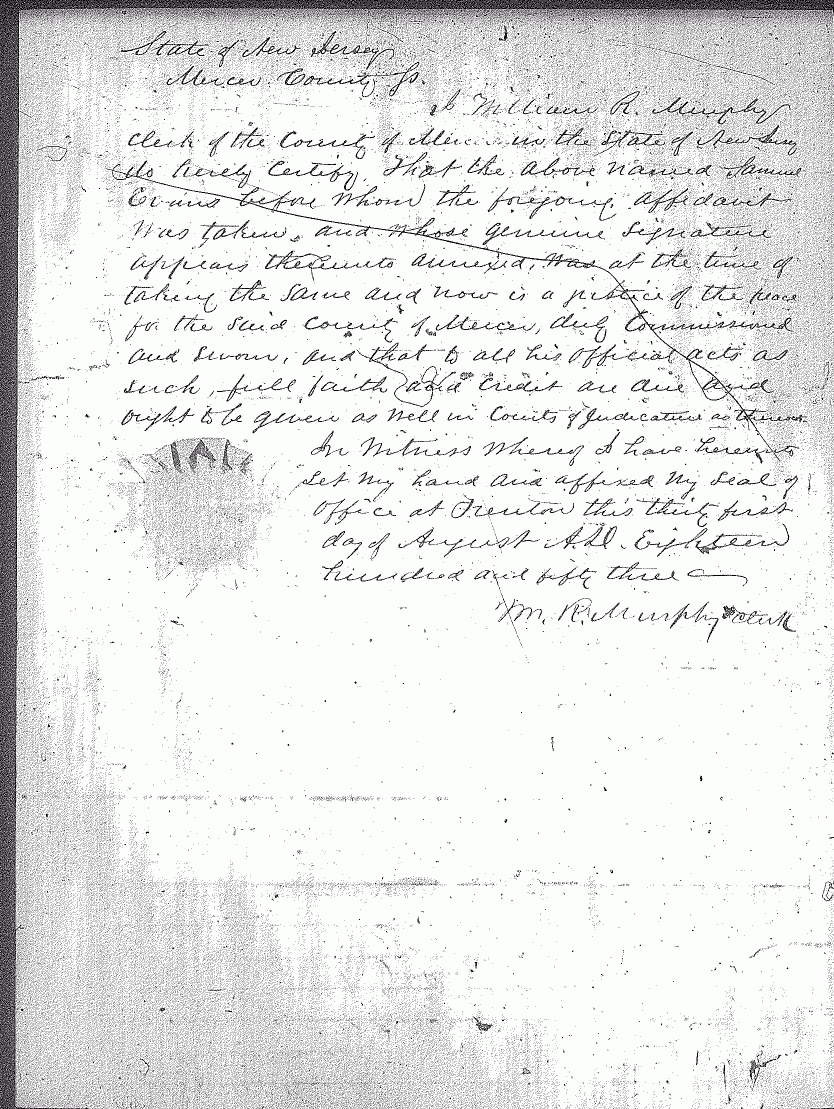 State of New Jersey
Mercer County Ss.
I William R. Murphy
Clerk of the County of Mercer in the State of New Jersey
do hereby Certify, That the above named Samuel
Evans before whom the foregoing affidavit
was taken, and whose genuine signature
appears thereunto annexed, was at the time of
taking the same and now is a justice of the peace
for the said County of Mercer, duly Commissioned
and sworn, and that to all his official acts as
such, full faith and Credit are due and
ought to be given as well in Courts of Judicature as thereout
In Witness whereof I have hereunto
set my hand and affixed my Seal of
Office at Trenton this thirty first
day of August A.D. Eighteen
hundred and fifty three
Wm. R. Murphy Clerk